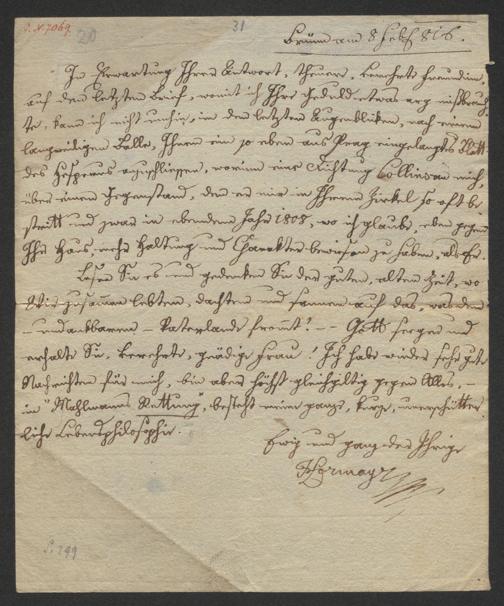 I. N. 7069.
20
31
Brünn am 8 Feb 816.
In Erwartung Ihrer Antwort, theure, verehrte Freundin,
auf den letzten Brief, womit ich Ihre Geduld etwas arg mißbrauch-
te, kann ich nicht umhin, in den letzten Augenblicken, nach einem
langweiligen Balle, Ihnen ein so eben aus Prag eingelangtes Blatt
des Hesperus anzuschliessen, worinn eine Dichtung Collins an mich,
über einen Gegenstand, den er mir in Ihrem Zirkel so oft be-
stritt und zwar in ebendem Jahr 1808, wo ich glaube, eben gegen
Ihr Haus, mehr Haltung und Charakter bewiesen zu haben, als Er.
Lesen Sie es und gedenken Sie der guten, alten Zeit, wo
Wir zusammen lebten, dachten und sannen auf das, was dem
– undankbaren – Vaterlande fromt! – – Gott segne und
erhalte Sie, verehrte, gnädige Frau! Ich habe wieder sehr gute
Nachrichten für mich, bin aber höchst gleichgültig gegen Alles, –
in "Mahlmanns Rettung", besteht meine ganze, kurze, unerschütter-
liche Lebensphilosophie.
Ewig und ganz der Ihrige
Hormayr
S. 299